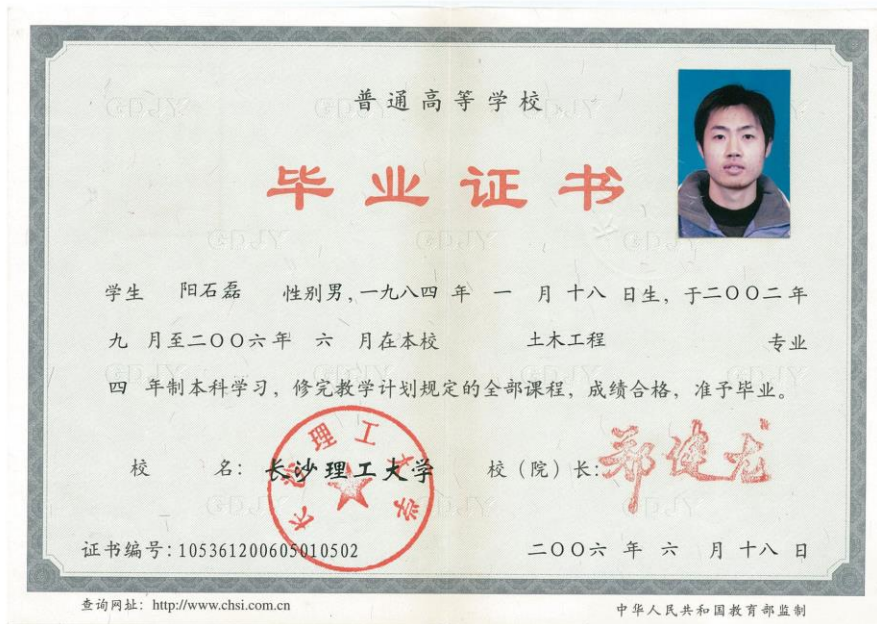 普通高等学校
毕业证书
学生 阳石磊 性别男，一九八四 年 一 月 十八 日生，于二〇〇二 年
九 月至二〇〇六 年 六 月在本校 土木工程 专业
四 年制本科学习，修完教学计划规定的全部课程，成绩合格，准予毕业。
校 名：长沙理工大学 校（院）长：郑健龙
长沙理工大学
证书编号：105361200605010502 二〇〇六 年 六 月 十八 日
查询网址：http://www.chsi.com.cn 中华人民共和国教育部监制